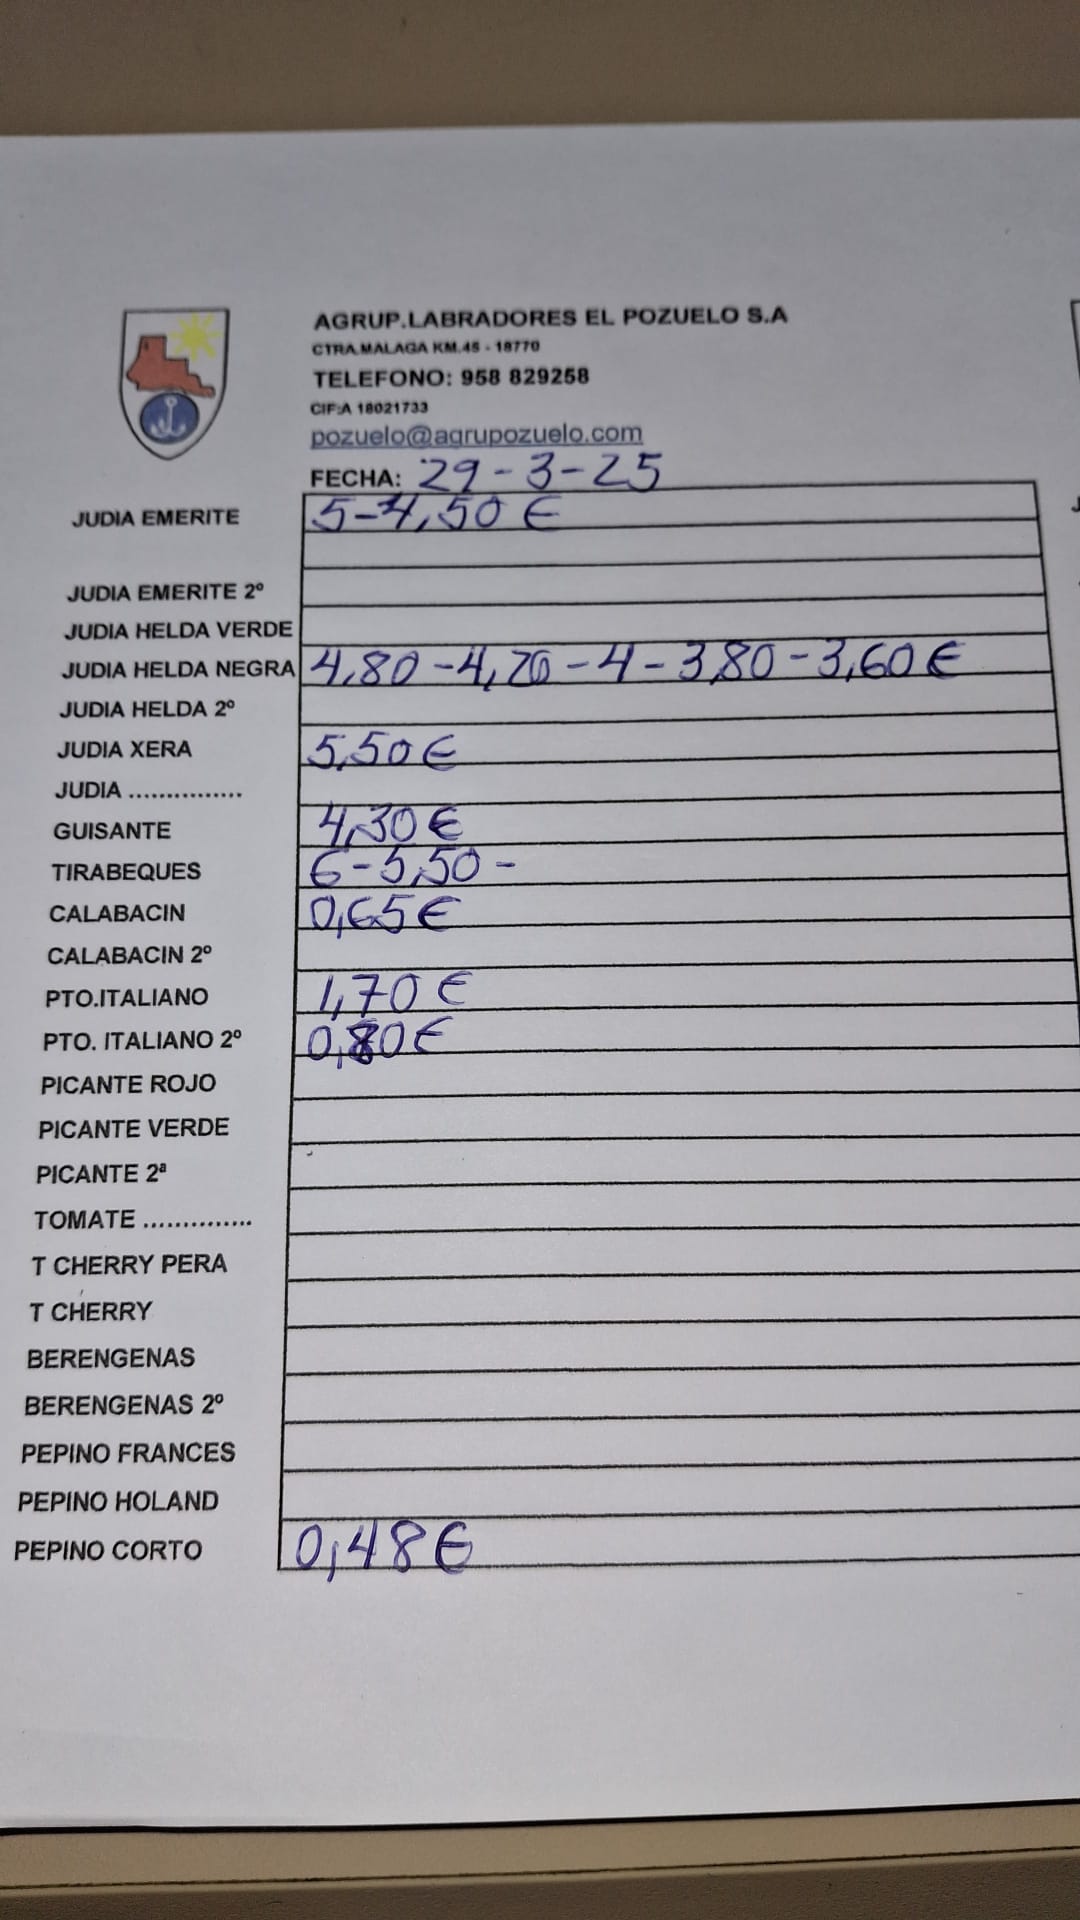 AGRUP.LABRADORES EL POZUELO S.A
CTRA.MALAGA KM.45 - 18770
TELEFONO: 958 829258
CIF:A 18021733
pozuelo@agrupozuelo.com
FECHA: 29-3-25
JUDIA EMERITE 5-4,50 €
JUDIA EMERITE 2º
JUDIA HELDA VERDE
JUDIA HELDA NEGRA 4,80-4,20-4-3,80-3,60€
JUDIA HELDA 2º
JUDIA XERA 5,50€
JUDIA ...............
GUISANTE 4,30€
TIRABEQUES 6-5,50-
CALABACIN 0,65€
CALABACIN 2º
PTO.ITALIANO 1,70€
PTO. ITALIANO 2º 0,80€
PICANTE ROJO
PICANTE VERDE
PICANTE 2ª
TOMATE ..............
T CHERRY PERA
T CHERRY
BERENGENAS
BERENGENAS 2º
PEPINO FRANCES
PEPINO HOLAND
PEPINO CORTO 0,48€